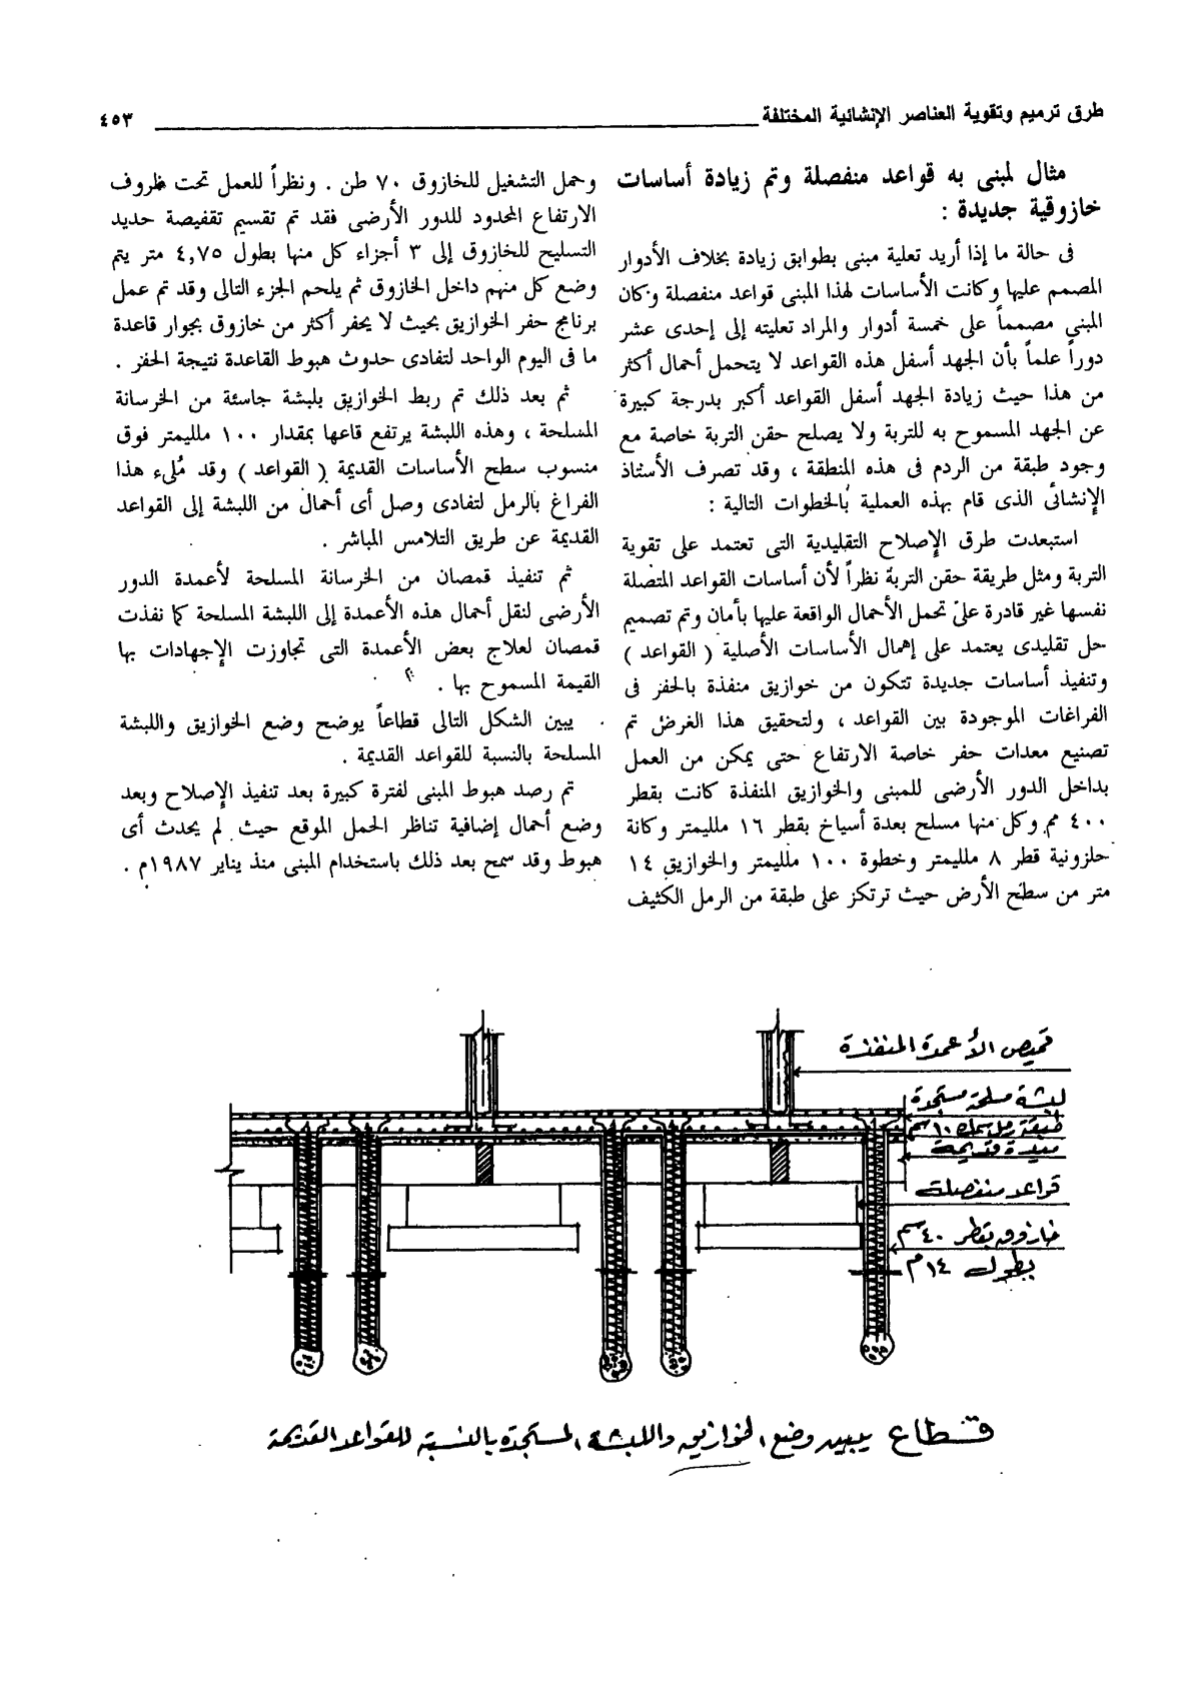 طرق ترميم وتقوية العناصر الإنشائية المختلفة ٤٥٣
مثال لمبنى به قواعد منفصلة وتم زيادة أساسات
خازوقية جديدة :
فى حالة ما إذا أريد تعلية مبنى بطوابق زيادة بخلاف الأدوار
المصمم عليها وكانت الأساسات لهذا المبنى قواعد منفصلة وكان
المبنى مصمماً على خمسة أدوار والمراد تعليته إلى إحدى عشر
دوراً علماً بأن الجهد أسفل هذه القواعد لا يتحمل أحمال أكثر
من هذا حيث زيادة الجهد أسفل القواعد أكبر بدرجة كبيرة
عن الجهد المسموح به للتربة ولا يصلح حقن التربة خاصة مع
وجود طبقة من الردم فى هذه المنطقة ، وقد تصرف الأستاذ
الإنشائى الذى قام بهذه العملية بالخطوات التالية :
استبعدت طرق الإصلاح التقليدية التى تعتمد على تقوية
التربة ومثل طريقة حقن التربة نظراً لأن أساسات القواعد المتصلة
نفسها غير قادرة على تحمل الأحمال الواقعة عليها بأمان وتم تصميم
حل تقليدى يعتمد على إهمال الأساسات الأصلية ( القواعد )
وتنفيذ أساسات جديدة تتكون من خوازيق منفذة بالحفر فى
الفراغات الموجودة بين القواعد ، ولتحقيق هذا الغرض تم
تصنيع معدات حفر خاصة الارتفاع حتى يمكن من العمل
بداخل الدور الأرضى للمبنى والخوازيق المنفذة كانت بقطر
٤٠٠ مم وكل منها مسلح بعدة أسياخ بقطر ١٦ ملليمتر وكانة
حلزونية قطر ٨ ملليمتر وخطوة ١٠٠ ملليمتر والخوازيق ١٤
متر من سطح الأرض حيث ترتكز على طبقة من الرمل الكثيف
وحمل التشغيل للخازوق ٧٠ طن . ونظراً للعمل تحت ظروف
الارتفاع المحدود للدور الأرضى فقد تم تقسيم تقفيصة حديد
التسليح للخازوق إلى ٣ أجزاء كل منها بطول ٤,٧٥ متر يتم
وضع كل منهم داخل الخازوق ثم يلحم الجزء التالى وقد تم عمل
برنامج حفر الخوازيق بحيث لا يحفر أكثر من خازوق بجوار قاعدة
ما فى اليوم الواحد لتفادى حدوث هبوط القاعدة نتيجة الحفر .
ثم بعد ذلك تم ربط الخوازيق بلبشة جاسئة من الخرسانة
المسلحة ، وهذه اللبشة يرتفع قاعها بمقدار ١٠٠ ملليمتر فوق
منسوب سطح الأساسات القديمة ( القواعد ) وقد مُلىء هذا
الفراغ بالرمل لتفادى وصل أى أحمال من اللبشة إلى القواعد
القديمة عن طريق التلامس المباشر .
ثم تنفيذ قمصان من الخرسانة المسلحة لأعمدة الدور
الأرضى لنقل أحمال هذه الأعمدة إلى اللبشة المسلحة كما نفذت
قمصان لعلاج بعض الأعمدة التى تجاوزت الإجهادات بها
القيمة المسموح بها .
يبين الشكل التالى قطاعاً يوضح وضع الخوازيق واللبشة
المسلحة بالنسبة للقواعد القديمة .
تم رصد هبوط المبنى لفترة كبيرة بعد تنفيذ الإصلاح وبعد
وضع أحمال إضافية تناظر الحمل الموقع حيث لم يحدث أى
هبوط وقد سمح بعد ذلك باستخدام المبنى منذ يناير ١٩٨٧م .
قميص الأعمدة المنفذة
لبشة مسلحة مستجدة
طبقة رمل سمك ١٠ سم
ميدة قديمة
قواعد منفصلة
خازوق بقطر ٤٠ سم
بطول ١٤ م
قطاع يبين وضع الخوازيق واللبشة المستجدة بالنسبة للقواعد القديمة